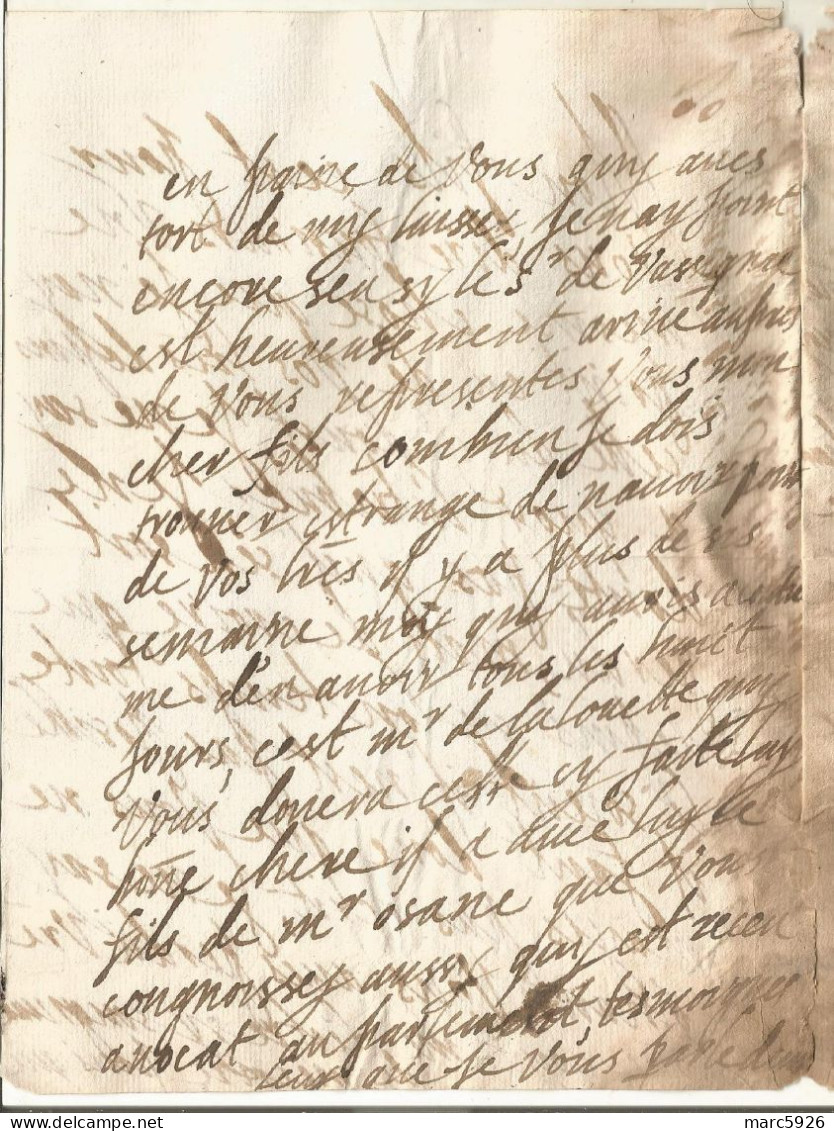 en paine de vous quy aves
tort de my laisser, Je nay point
encore sen sy le sr de Vassignac
est heureusement arivé aupres
de vous representes vous mon
cher fils combien Je dois
trouver estrange de navoir point
de vos lres il y a plus de
semaine moy quy avois
me den avoir tous les huit
Jours, cest mr de lalouette quy
Vous donera celle cy faite luy
bone chere il a avec luy le
fils de mr osane que vous
congnoissey aussy quy est receu
avocat au parlement, tesmoigner
leur que Je vous
marc5926